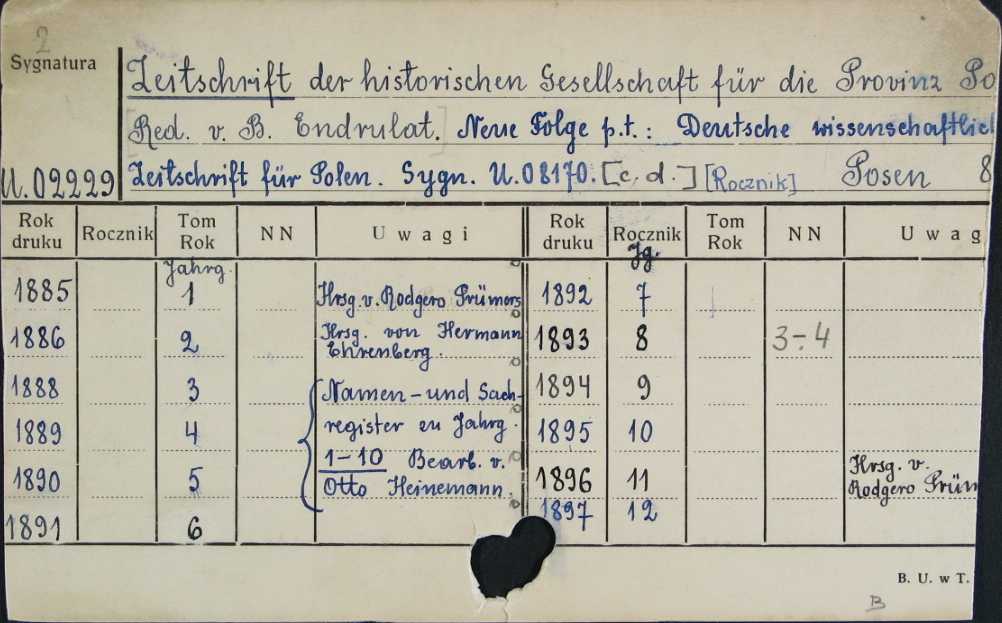 2
Sygnatura
Zeitschrift der historischen Gesellschaft für die Provinz Po
[Red. v. B. Endrulat. Neue Folge p.t.: Deutsche wissenschaftlic
U.02229 Zeitschrift für Polen. Sygn. U.08170. [c.d.-] [Rocznik] Posen 8
Rok druku Rocznik Tom Rok NN Uwagi Rok druku Rocznik Tom Rok NN Uwag
Jahrg. Jg.
1885 1 Hrsg. v. Rodgero Prümers 1892 7
1886 2 Hrsg. von Hermann Ehrenberg. 1893 8 3-4
1888 3 Namen-und Sach- 1894 9
1889 4 register zu Jahrg. 1895 10
1890 5 1-10 Bearb. v. Otto Heinemann. 1896 11 Hrsg. v. Rodgero Prüm
1891 6 1897 12
B. U. w T.
B